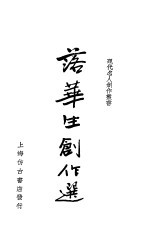 現代名人創作叢書
落華生創作選
上海仿古書店發行